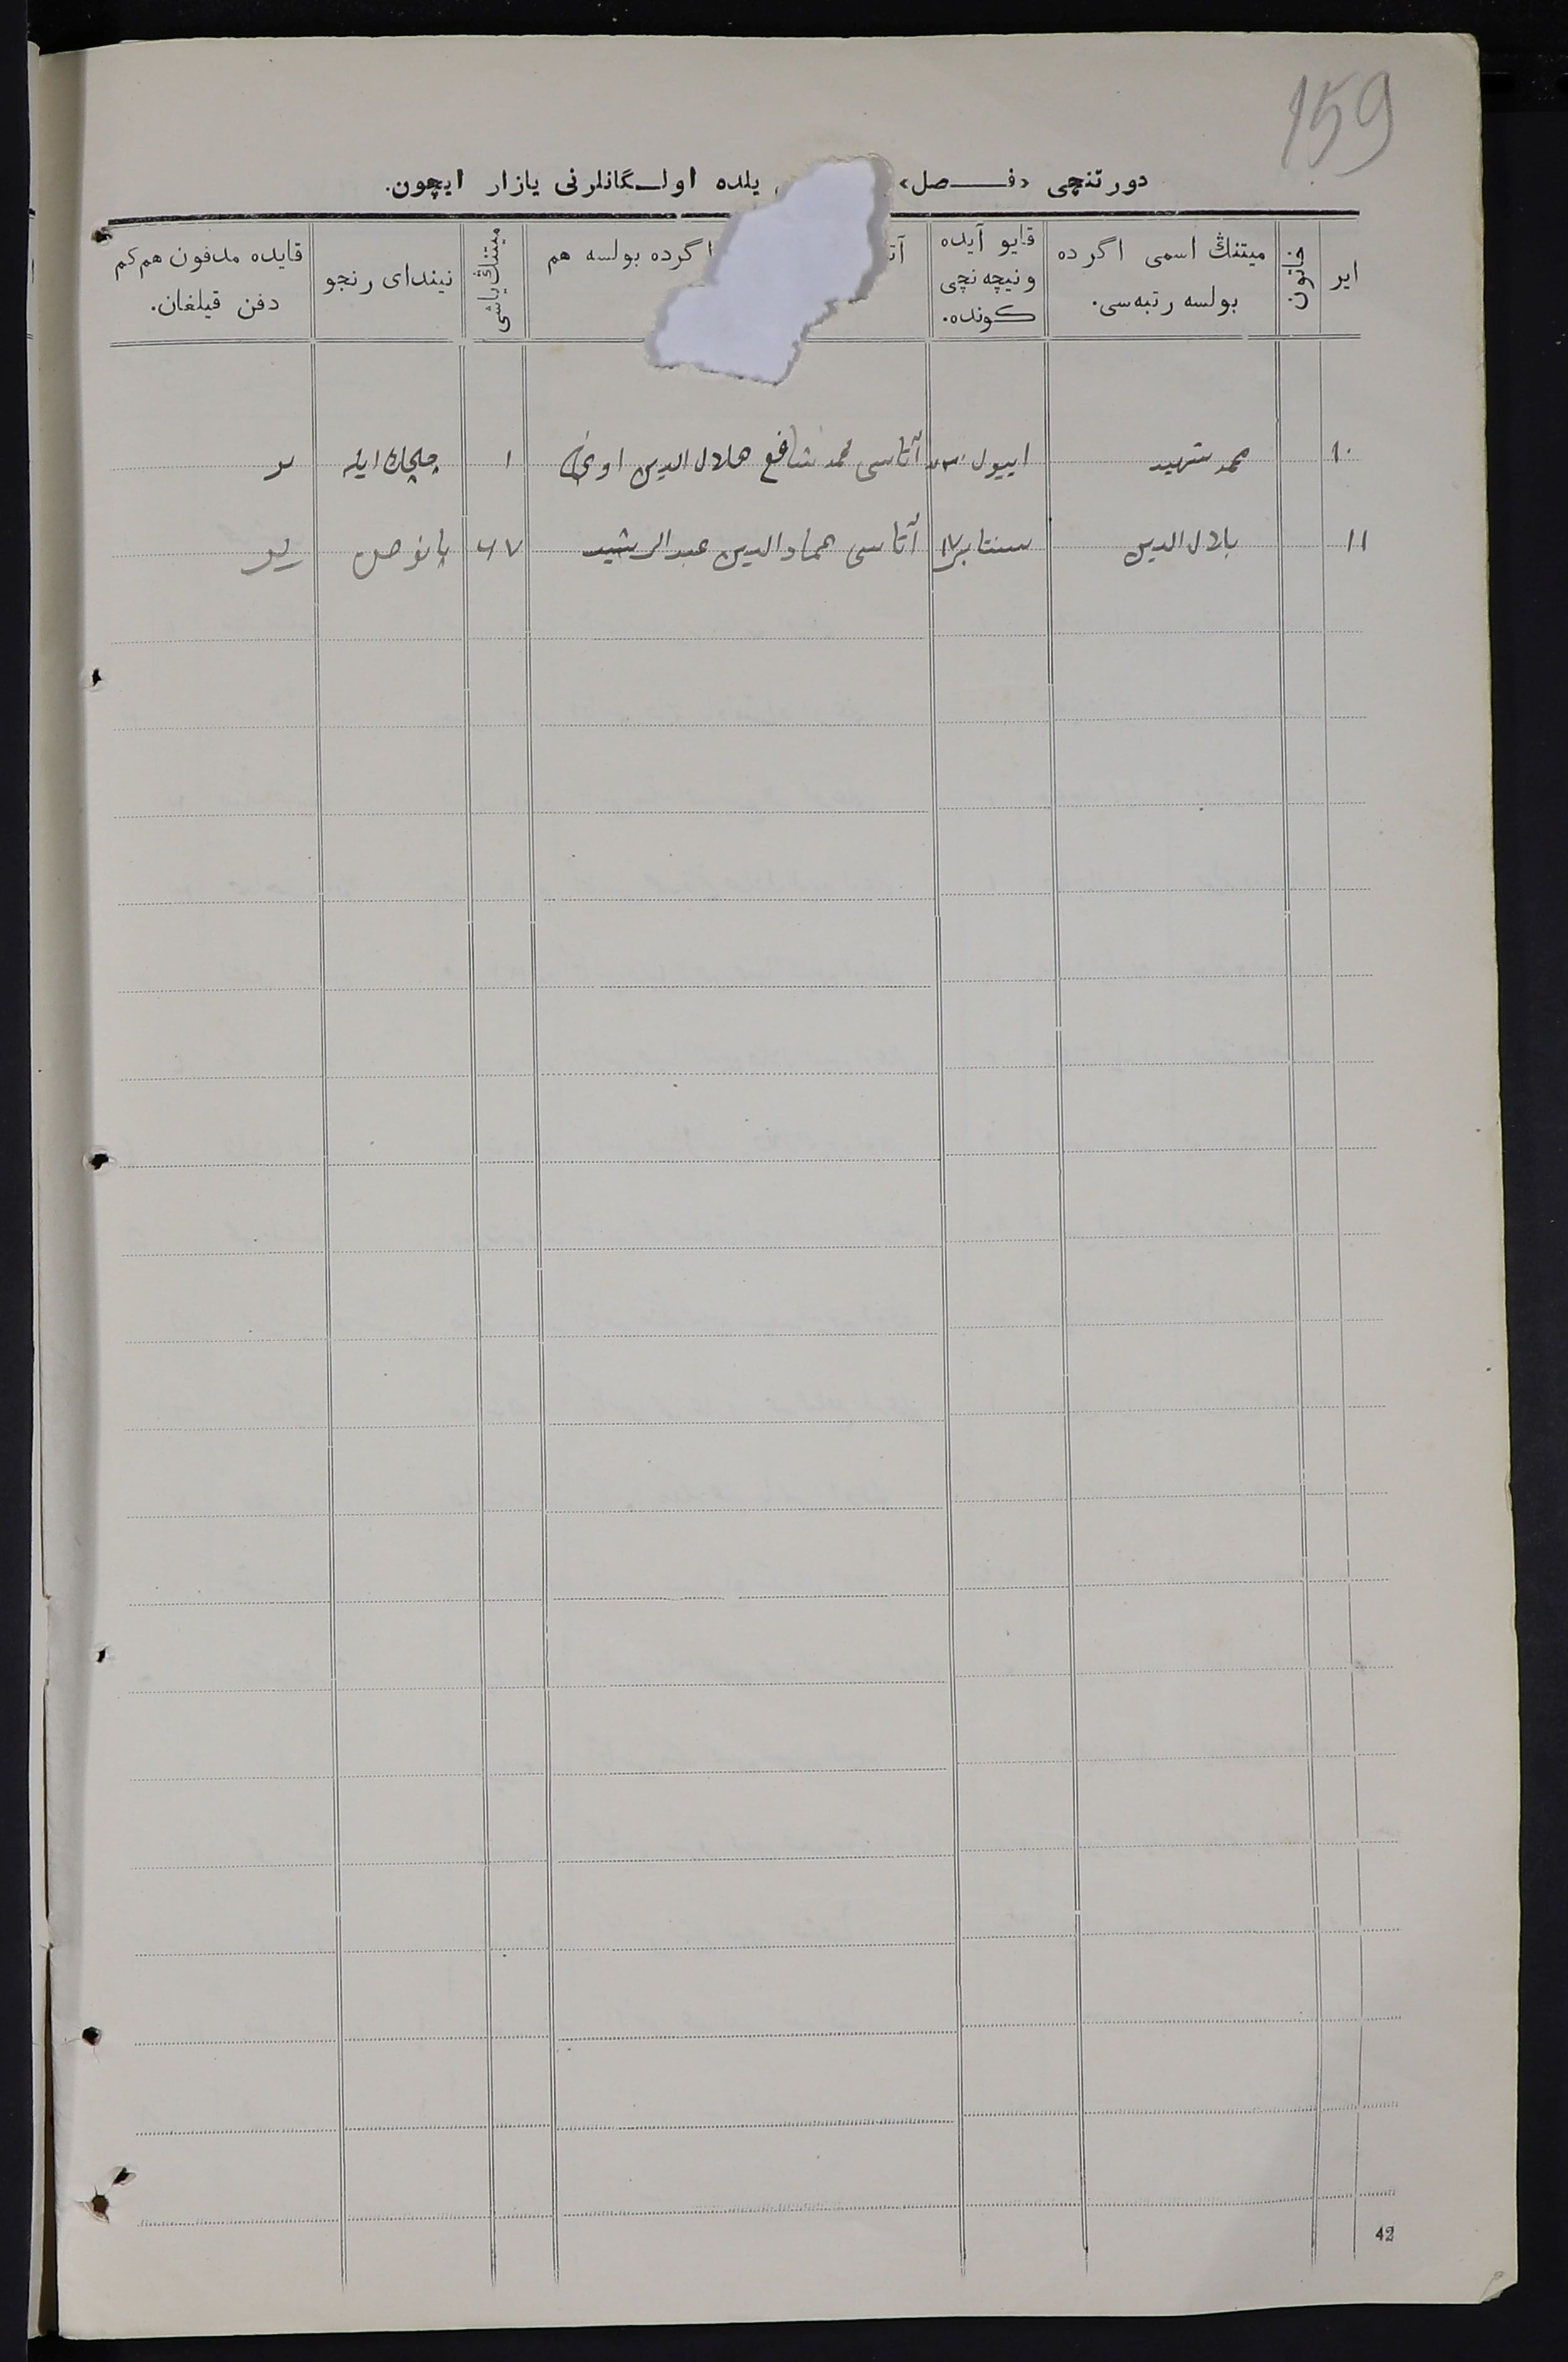 159
دورتنچی «فـصل» یلده اولـگانلرنی یازار ایچون.
ایر
خاتون
میتنڭ اسمی اگر ده
بولسه رتبه‌سی.
قایو آیده
و نیچه نچی
کونده.
اگرده بولسه هم
میتنڭ یاشی
نیندای رنجو
قایده مدفون هم کم
دفن قیلغان.
۱۰ محمد شهید اییول آتاسی محمد شافع هلال الدین اوغلی ۱ چچاك ایله
۱۱ بلال الدین سنتابر ۱۷ آتاسی عماد الدین عبدالرشید ۶۷
42